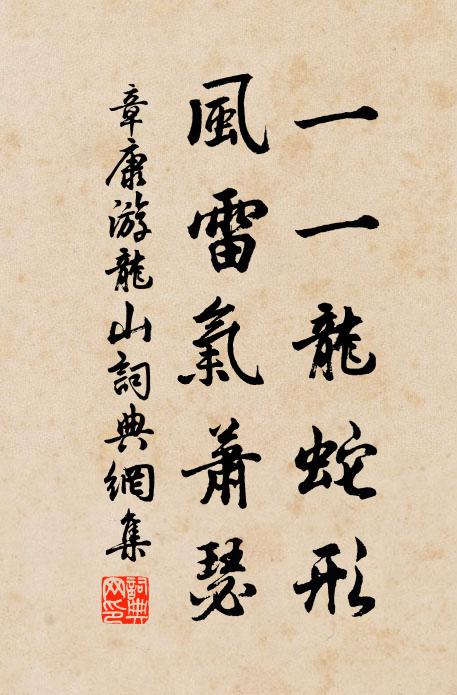 一一龍蛇形
風雷氣蕭瑟
章康游龍山詞典網集
詞典
网印